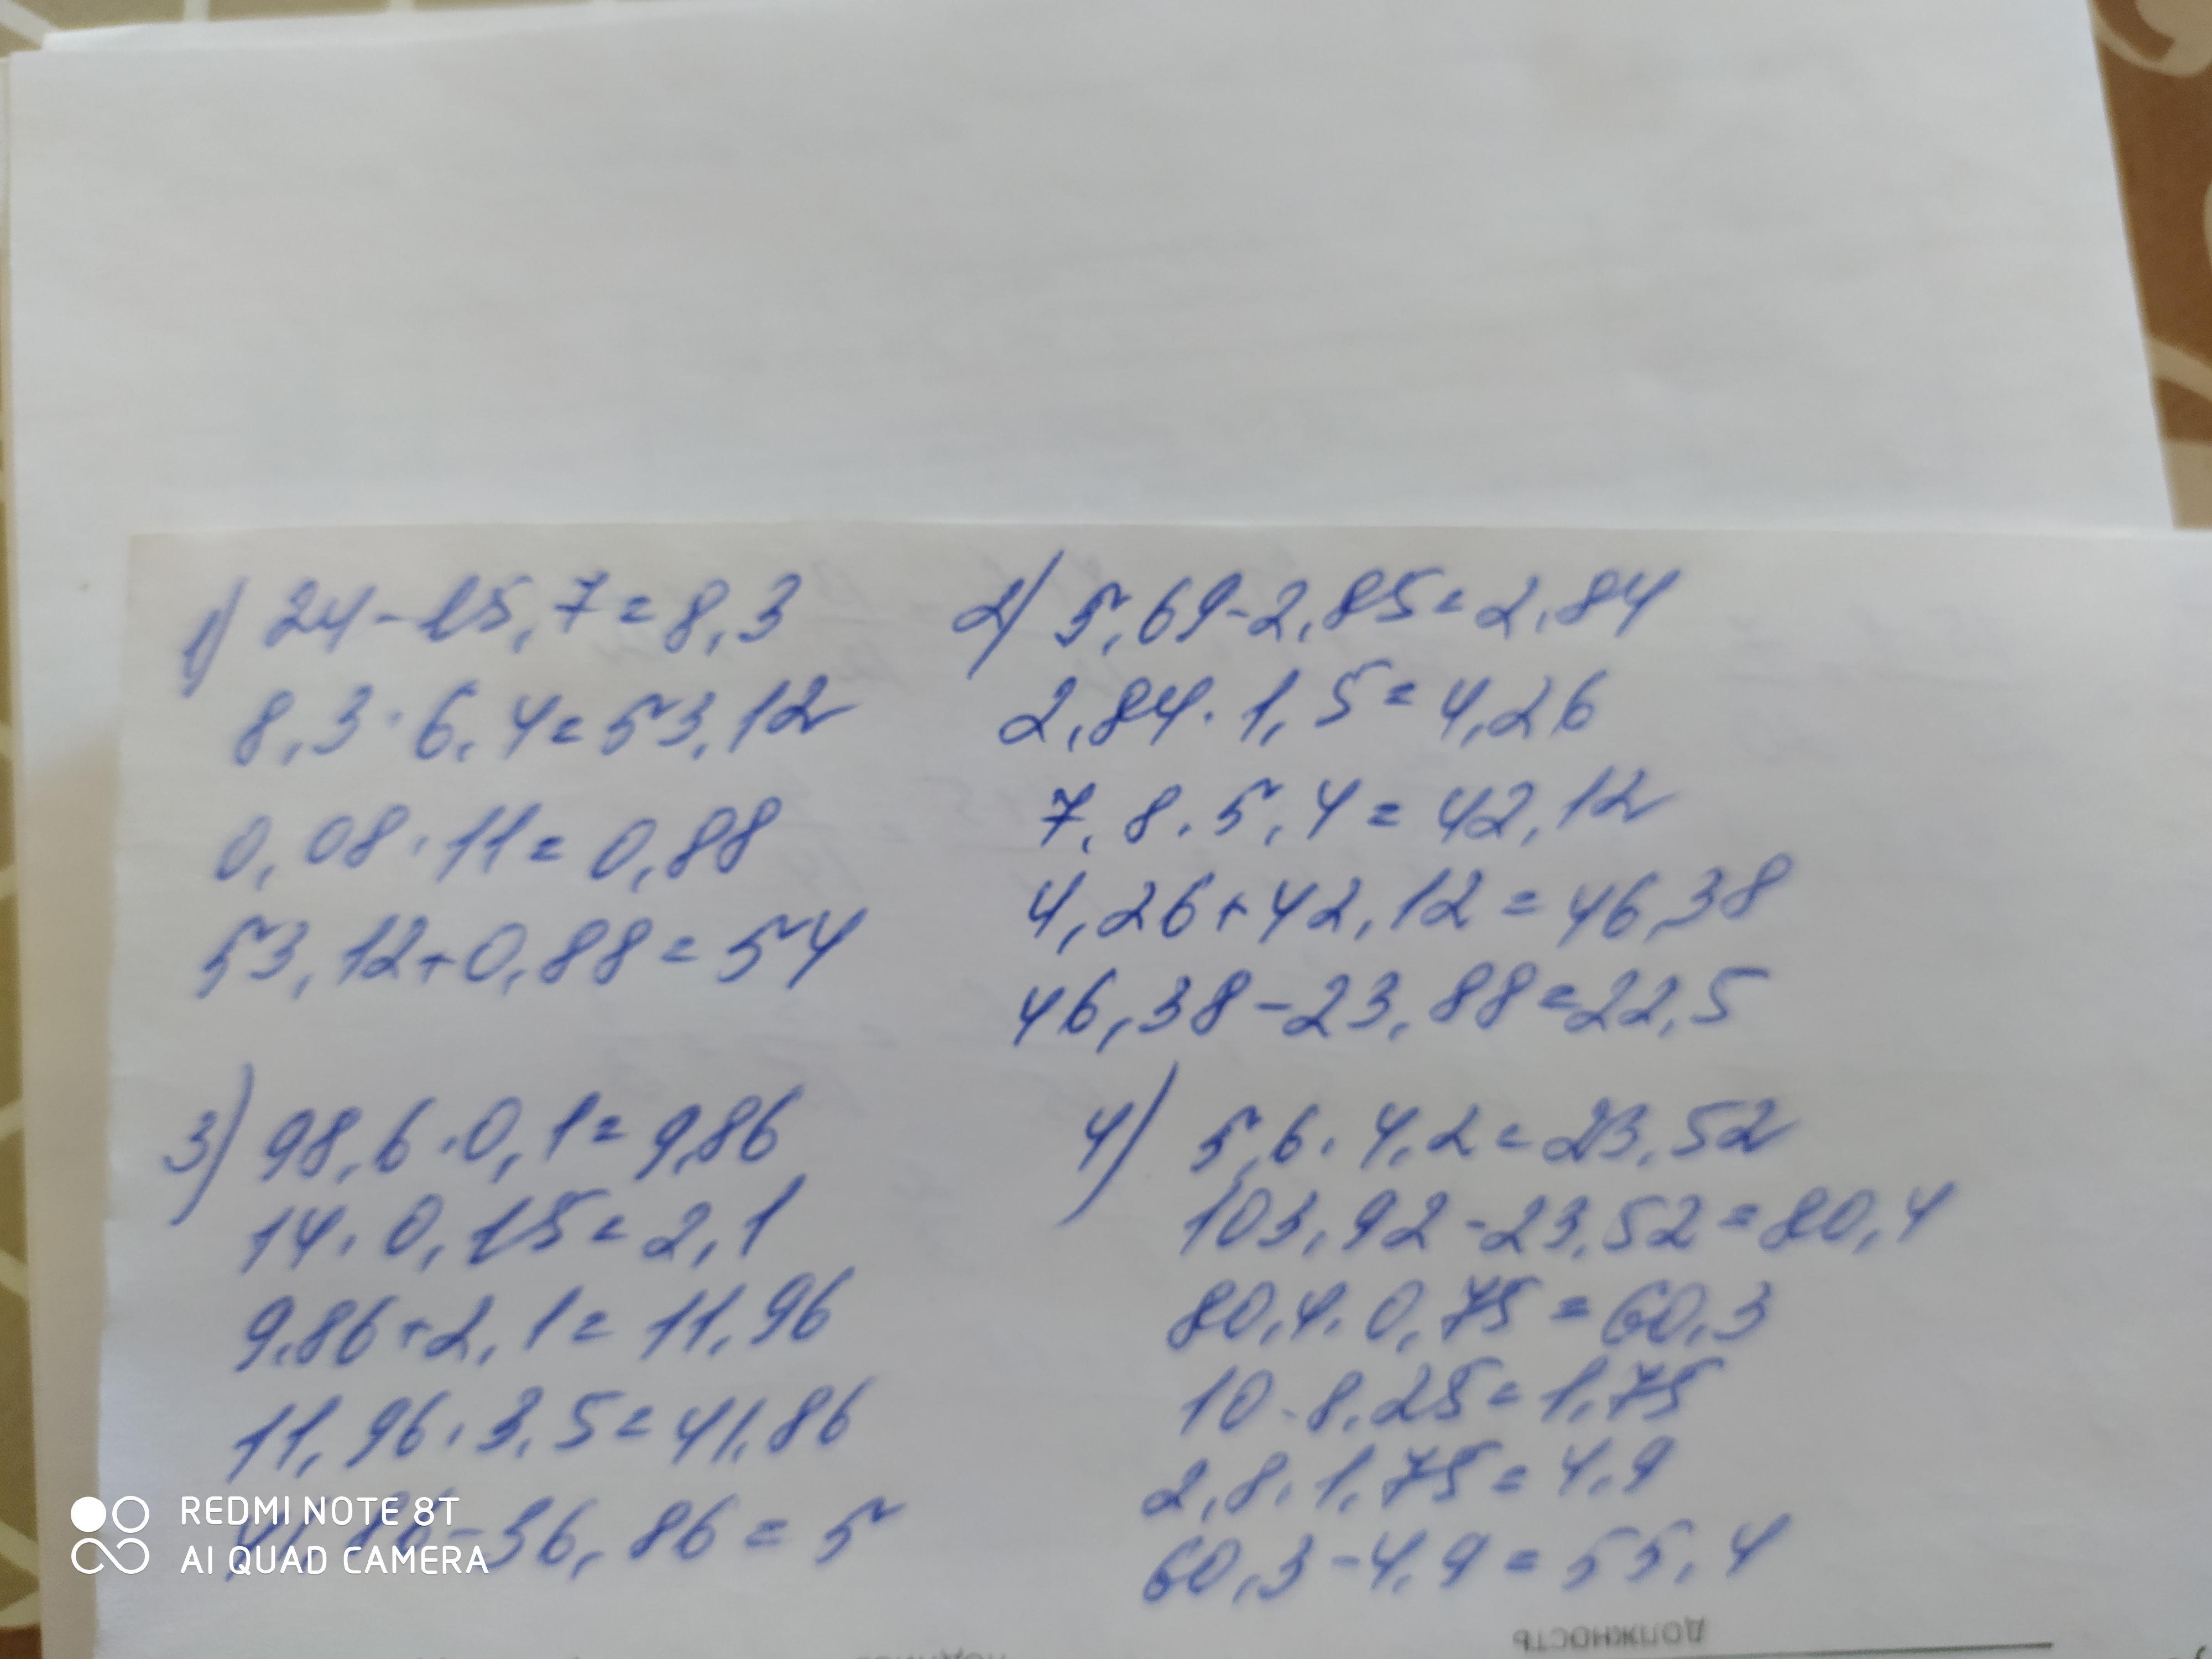 1) 24-15,7=8,3
8,3·6,4=53,12
0,08·11=0,88
53,12+0,88=54
2) 5,69-2,85=2,84
2,84·1,5=4,26
7,8·5,4=42,12
4,26+42,12=46,38
46,38-23,88=22,5
3) 98,6·0,1=9,86
14·0,15=2,1
9,86+2,1=11,96
11,96·3,5=41,86
41,86-36,86=5
4) 5,6·4,2=23,52
103,92-23,52=80,4
80,4·0,75=60,3
10-8,25=1,75
2,8·1,75=4,9
60,3-4,9=55,4
должность
REDMI NOTE 8T
AI QUAD CAMERA